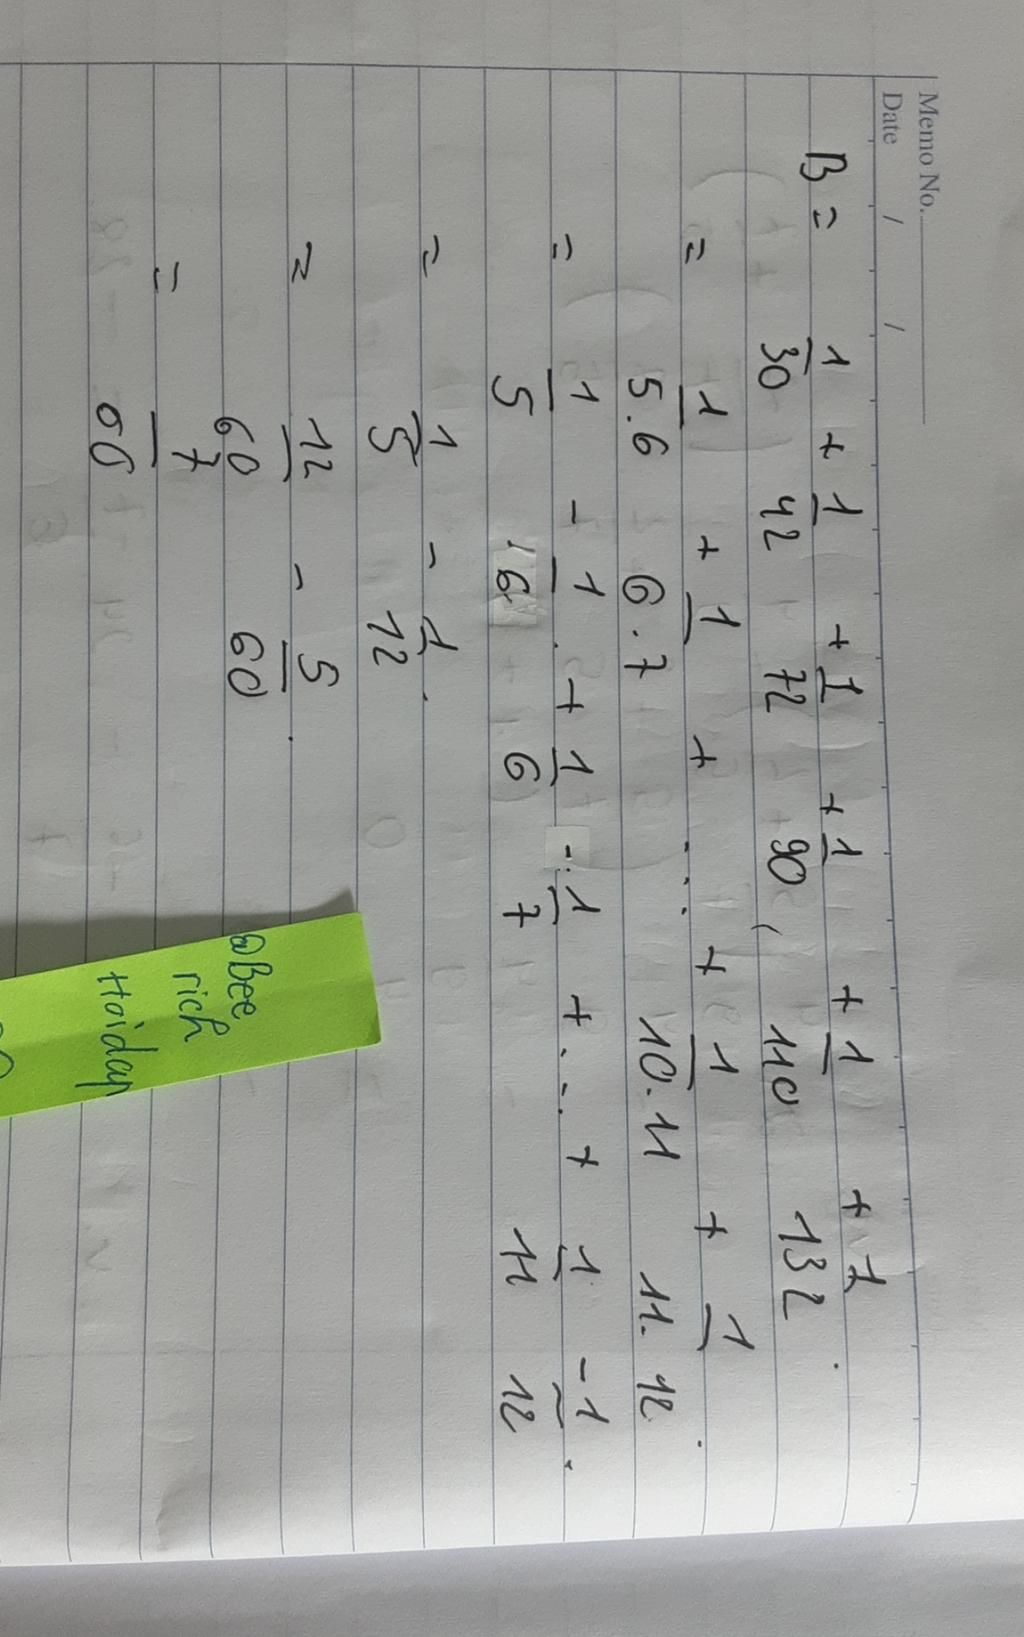 Memo No.
Date / /
B = 1/30 + 1/42 + 1/72 + 1/90 + 1/110 + 1/132.
= 1/5.6 + 1/6.7 + ... + 1/10.11 + 1/11.12.
= 1/5 - 1/6 + 1/6 - 1/7 + ... + 1/11 - 1/12.
= 1/5 - 1/12.
= 12/60 - 5/60.
= 7/60
@Bee
rich
Hoidap